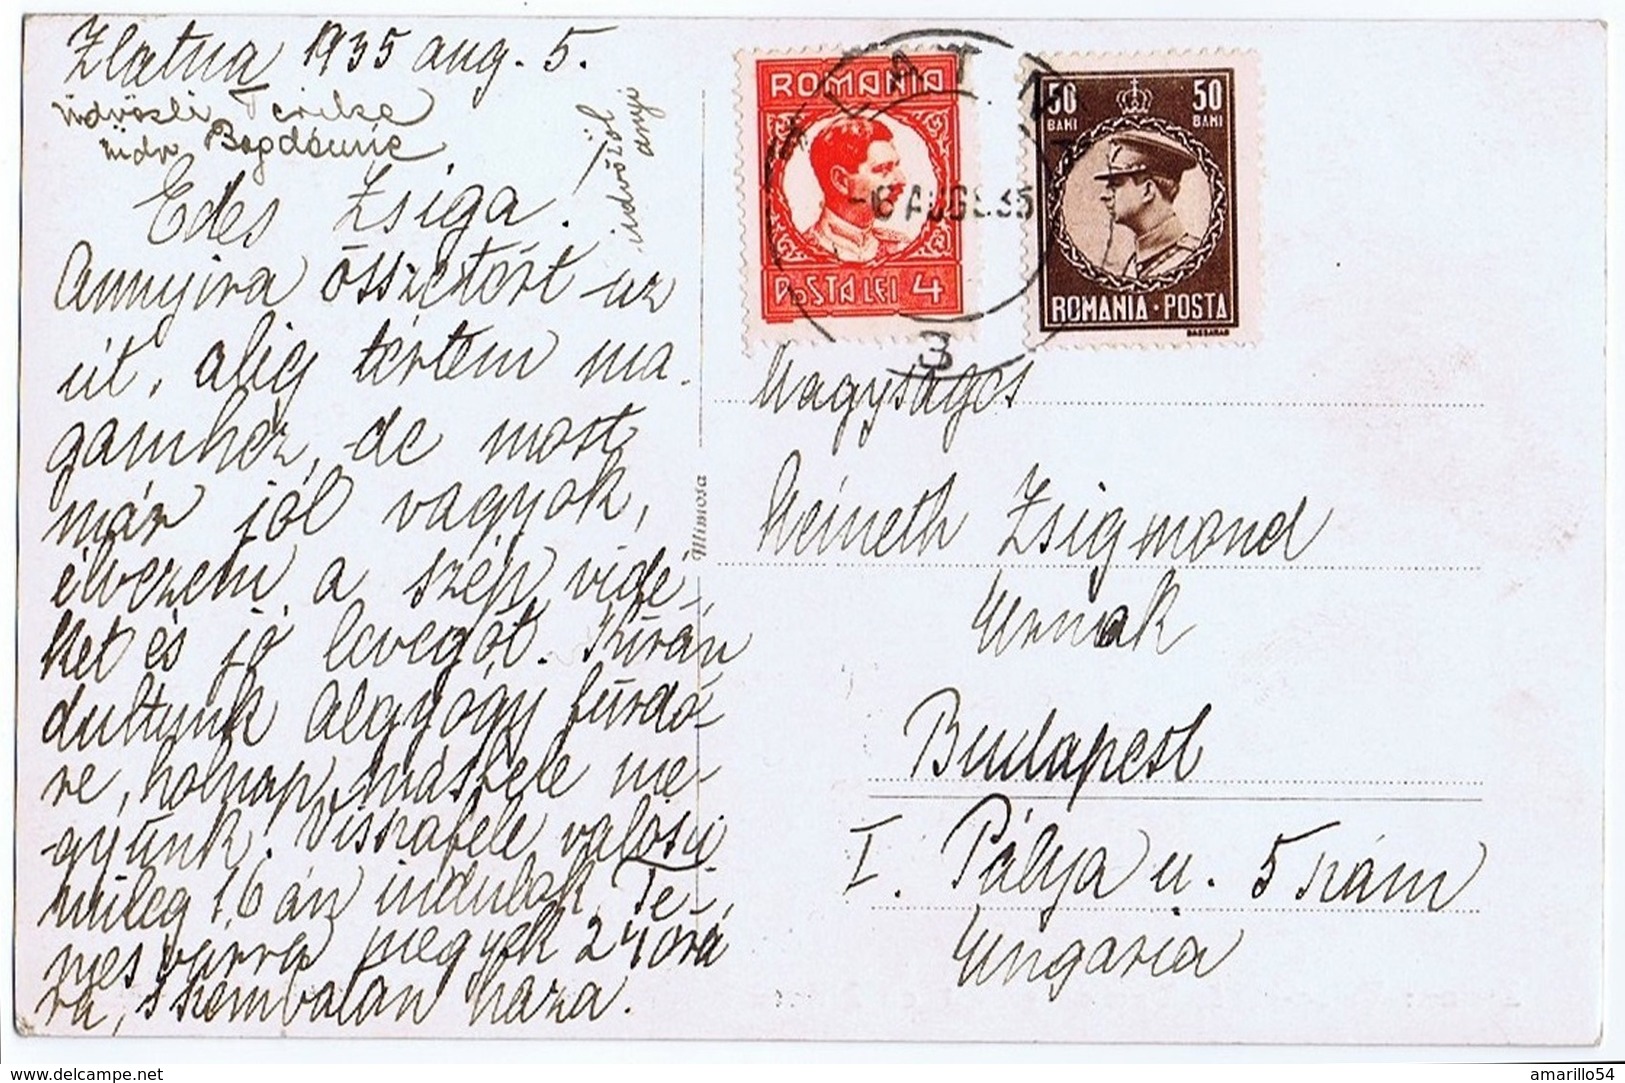 Zlatna 1935 aug. 5.
üdvözli Terike
üdv Bogdánné
üdvözöl
anyi
Edes Zsiga!
Annyira összetört az
út, alig tértem ma-
gamhoz, de most
már jól vagyok,
élvezem a szép vidé-
ket és jó levegőt. Kirán
dultunk Algyógy fürdő-
re, holnap máskele me-
gyünk. Visszafele valószi
nüleg 16 án indulok, Te-
mesvárra megyek 24 órá
ra, s szombatan haza.
Mimosa
ROMANIA
POSTA LEI 4
50 BANI
50 BANI
ROMANIA · POSTA
ZLATNA
-6 AUG 935
3
Nagyságos
Németh Zsigmond
Urnak
Budapest
I. Pálya u. 5 szám
Ungaria
www.delcampe.net
amarillo54